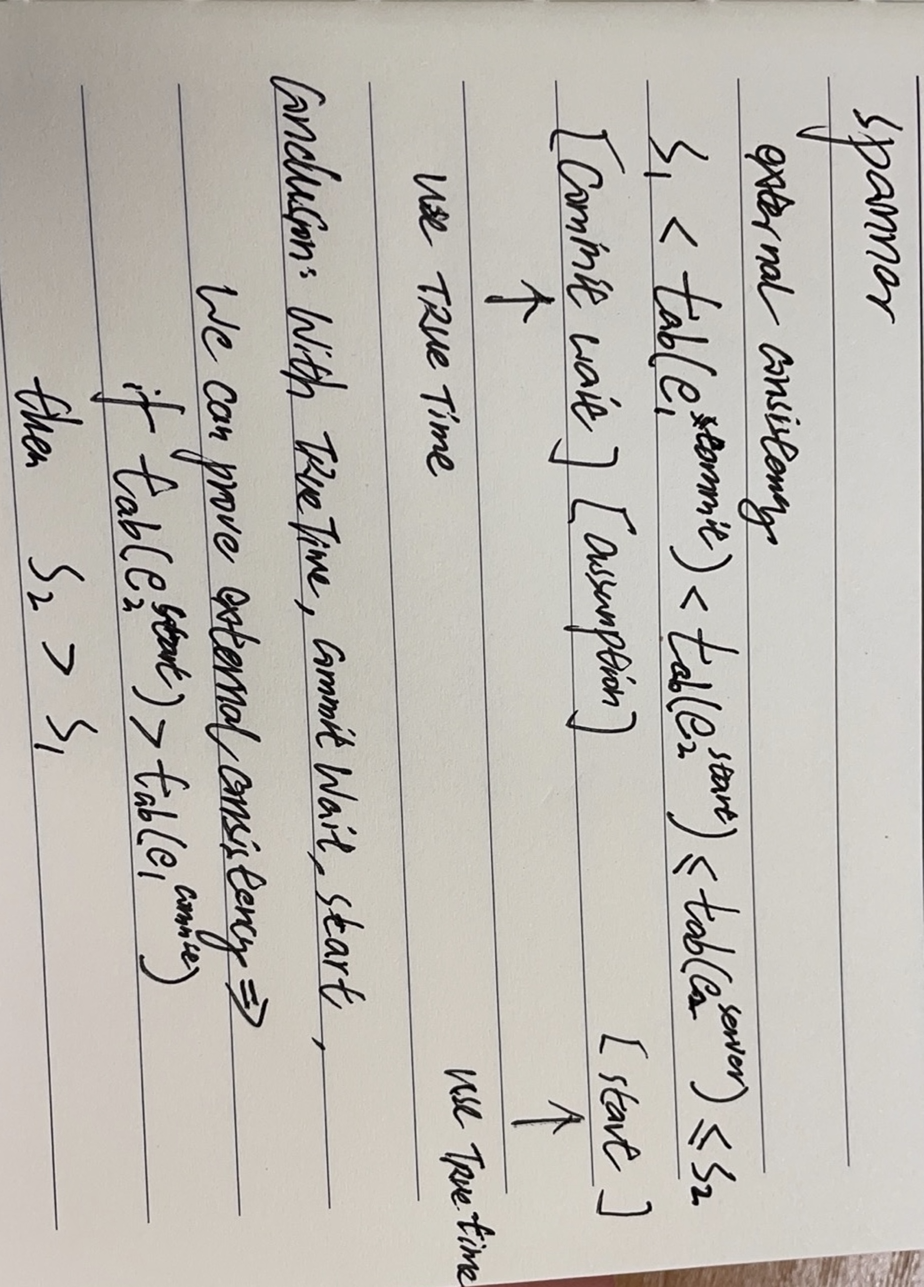 Spannor
external consistency
S₁ < tab(e₁^commit) < tab(e₂^start) ≤ tab(e₂^server) ≤ S₂
[Commit wait] [assumption] [start]
↑ ↑
use TRUE Time use True time
Conclusion: With TrueTime, commit Wait, start,
We can prove external consistency ⇒
if tab(e₂^start) > tab(e₁^commit)
then S₂ > S₁